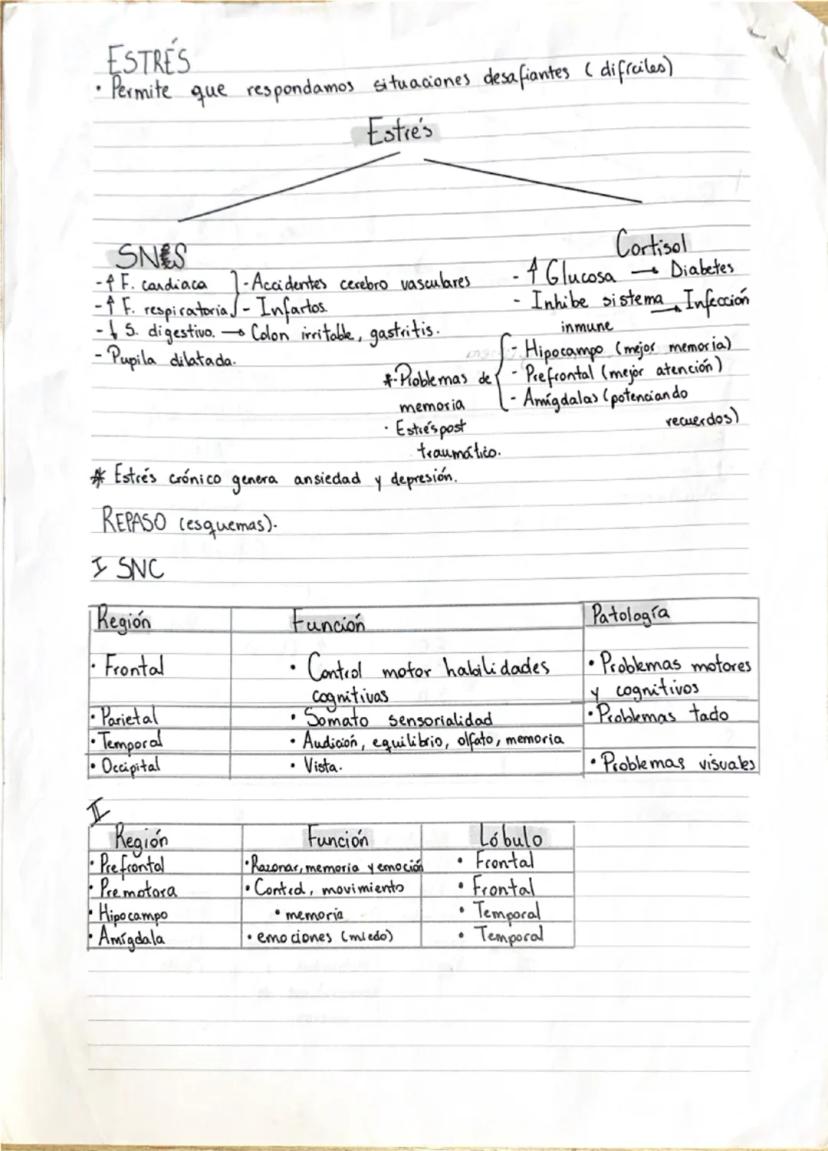 ESTRÉS
• Permite que respondamos situaciones desafiantes (difíciles)
Estrés
SNS
- ↑ F. cardiaca ] - Accidentes cerebro vasculares
- ↑ F. respiratoria ] - Infartos.
- ↓ S. digestivo. → Colon irritable, gastritis.
- Pupila dilatada.
Cortisol
- ↑ Glucosa → Diabetes
- Inhibe sistema → Infección
inmune
- Hipocampo (mejor memoria)
- Prefrontal (mejor atención)
- Amígdalas (potenciando
recuerdos)
* Problemas de
memoria
• Estrés post
traumático.
* Estrés crónico genera ansiedad y depresión.
REPASO (esquemas).
I SNC
Región Función Patología
• Frontal • Control motor habilidades • Problemas motores
cognitivas y cognitivos
• Parietal • Somato sensorialidad • Problemas tado
• Temporal • Audición, equilibrio, olfato, memoria
• Occipital • Vista. • Problemas visuales
II
Región Función Lóbulo
• Prefrontal • Razonar, memoria y emoción • Frontal
• Premotora • Control, movimiento • Frontal
• Hipocampo • memoria • Temporal
• Amígdala • emociones (miedo) • Temporal